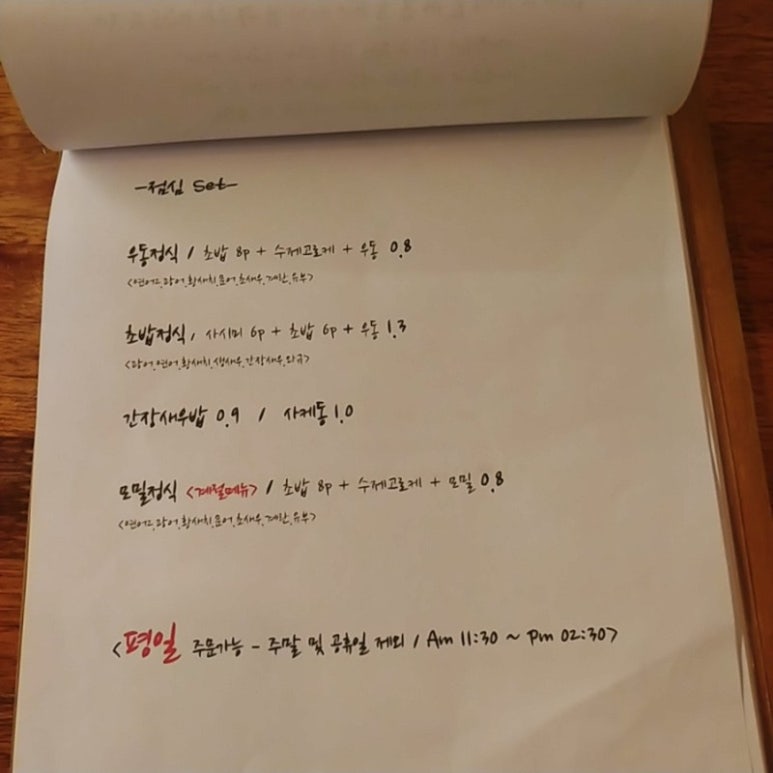 -점심 Set-
우동정식 / 초밥 8p + 수제고로케 + 우동 0.8
<연어2,광어,황새치,문어,초새우,계란,유부>
초밥정식 / 사시미 6p + 초밥 6p + 우동 1.3
<광어,연어,황새치,생새우,간장새우,와규>
간장새우밥 0.9 / 사케동 1.0
모밀정식 <계절메뉴> / 초밥 8p + 수제고로케 + 모밀 0.8
<연어2,광어,황새치,문어,초새우,계란,유부>
<평일 주문가능 - 주말 및 공휴일 제외 / Am 11:30 ~ pm 02:30>